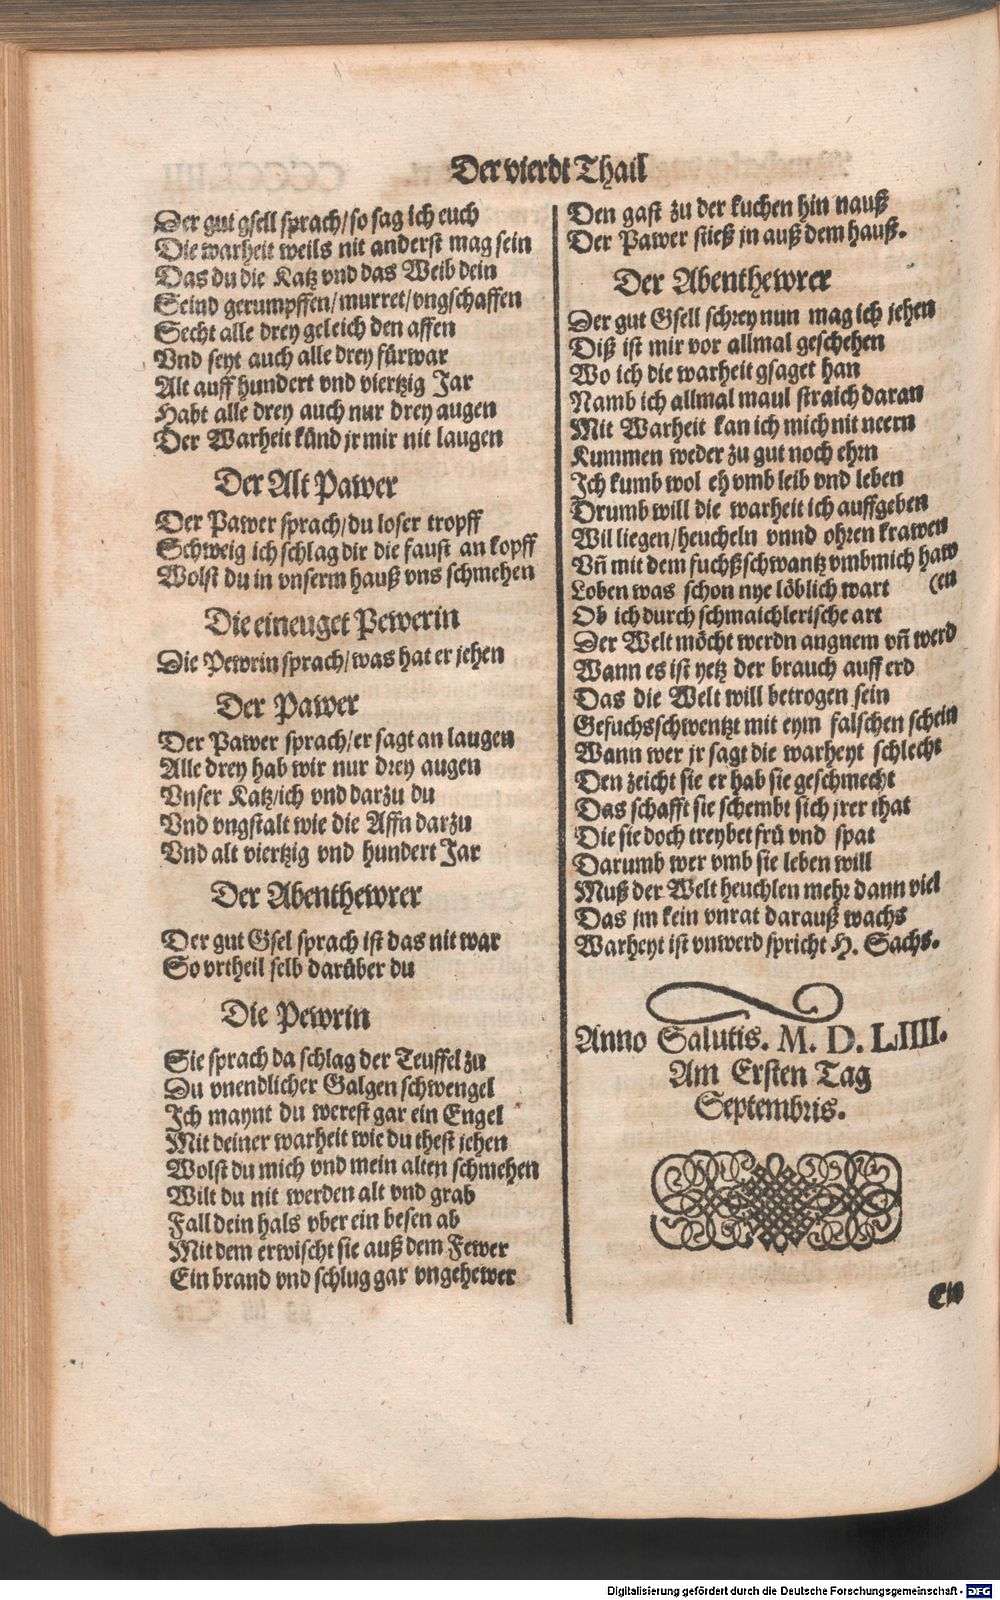 Der vierdt Thail
Der gut gsell sprach/so sag ich euch
Die warheit weils nit anderst mag sein
Das du die Katz vnd das Weib dein
Seind gerumpffen/murret/vngschaffen
Secht alle drey geleich den affen
Vnd seyt auch alle drey fürwar
Alt auff hundert vnd viertzig Jar
Habt alle drey auch nur drey augen
Der Warheit künd jr mir nit laugen
Der Alt Pawer
Der Pawer sprach/du loser tropff
Schweig ich schlag dir die faust an kopff
Wolst du in vnserm hauß vns schmehen
Die eineuget Pewerin
Die Pewrin sprach/was hat er jehen
Der Pawer
Der Pawer sprach/er sagt an laugen
Alle drey hab wir nur drey augen
Vnser Katz/ich vnd darzu du
Vnd vngstalt wie die Affn darzu
Vnd alt viertzig vnd hundert Jar
Der Abenthewrer
Der gut Gsel sprach ist das nit war
So vrtheil selb darüber du
Die Pewrin
Sie sprach da schlag der Teuffel zu
Du vnendlicher Galgen schwengel
Ich maynt du werest gar ein Engel
Mit deiner warheit wie du thest jehen
Wolst du mich vnd mein alten schmehen
Wilt du nit werden alt vnd grab
Fall dein hals vber ein besen ab
Mit dem erwischt sie auß dem Fewer
Ein brand vnd schlug gar vngehewer
Den gast zu der kuchen hin nauß
Der Pawer stieß jn auß dem hauß.
Der Abenthewrer
Der gut Gsell schrey nun mag ich jehen
Diß ist mir vor allmal geschehen
Wo ich die warheit gsaget han
Namb ich allmal maul straich daran
Mit Warheit kan ich mich nit neern
Kummen weder zu gut noch ehrn
Ich kumb wol eh vmb leib vnd leben
Drumb will die warheit ich auffgeben
Wil liegen/heucheln vnnd ohren krawen
Vñ mit dem fuchßschwantz vmbmich haw
Loben was schon nye löblich wart (en
Ob ich durch schmaichlerische art
Der Welt möcht werdn angnem vñ werd
Wann es ist yetz der brauch auff erd
Das die Welt will betrogen sein
Gefuchsschwentzt mit eym falschen schein
Wann wer jr sagt die warheyt schlecht
Den zeicht sie er hab sie geschmecht
Das schafft sie schembt sich jrer that
Die sie doch treybet frü vnd spat
Darumb wer vmb sie leben will
Muß der Welt heuchlen mehr dann viel
Das jm kein vnrat darauß wachs
Warheyt ist vnwerd spricht H. Sachs.
Anno Salutis. M. D. LIIII.
Am Ersten Tag
Septembris.
Digitalisierung gefördert durch die Deutsche Forschungsgemeinschaft - DFG